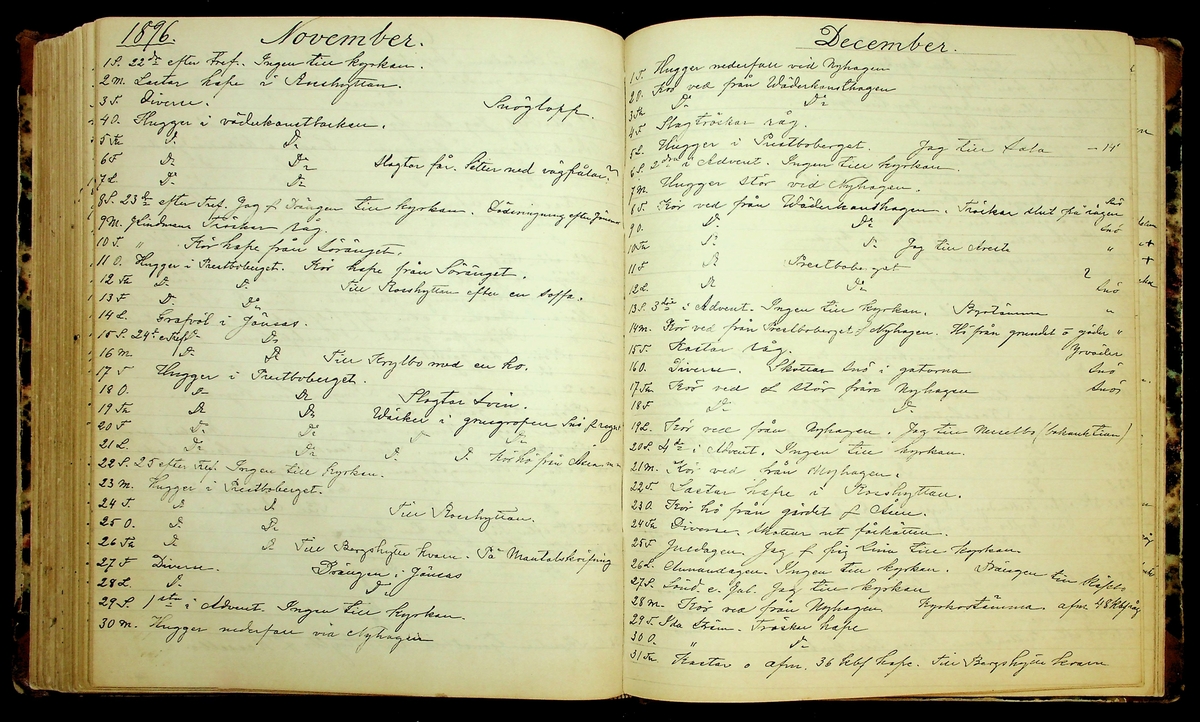 1896. November.
1 S. 22de efter Tref. Ingen till kyrkan.
2 M. Lastar hafre i Roeshyttan.
3 T. Diverse. Snöglopp.
4 O. Hugger i väderkvarnsbacken.
5 Th D:o D:o
6 F D:o D:o Slagtar får. Sätter ned vägpålar?
7 L. D:o D:o
8 S. 23de efter Tref. Jag f Drängen till kyrkan. efter
9 M. Lindmans Tröskar råg.
10 T. " Kör hafre från Söränget.
11 O. Hugger i Prestboberget. Kör hafre från Söränget.
12 Th D:o D:o Till Roeshyttan efter en soffa.
13 F D:o D:o
14 L. Grafvöl i Jönsas.
15 S. 24de e Tref D:o D:o
16 M. D:o D:o Till Krylbo med en ko.
17 T Hugger i Prestboberget.
18 O. D:o D:o Slagtar svin.
19 Th D:o D:o i grusgropen Snö f regn
20 F D:o D:o D:o D:o
21 L D:o D:o D:o D:o Kör hö från
22 S. 25 efter Tref. Ingen till kyrkan.
23 M. Hugger i Prestboberget.
24 T. D:o D:o Till Roeshyttan.
25 O. D:o D:o
26 Th D:o D:o Till Bergshytte kvarn. På Mantalskrifning
27 F Diverse. Drängen i Jönsas
28 L. D:o D:o
29 S. 1sta i Advent. Ingen till kyrkan.
30 M. Hugger nederfall vid Nyhagen
December.
1 T. Hugger nederfall vid Nyhagen
2 O. Kör ved från Wäderkvarnshagen
3 Th D:o D:o
4 F Slagtröskar råg.
5 L. Hugger i Prestboberget. Jag till Sala — 14°
6 S. 2dra i Advent. Ingen till kyrkan.
7 M. Hugger stör vid Nyhagen.
8 T. Kör ved från Wäderkvarnshagen. Tröskar slut på rågen Snö
9 O. D:o D:o Snö
10 Th D:o D:o Jag till Avesta "
11 F D:o Prestboberget
12 L D:o D:o Snö
13 S. 3dje i Advent. Ingen till kyrkan. Bystämma "
14 M. Kör ved från Prestboberget f Nyhagen. Hö från grundet o gärde "
15 T. Kastar råg. Yrväder
16 O. Diverse. Skottar snö i gatorna Snö
17 Th Kör ved o stör från Nyhagen Snö
18 F D:o D:o
19 L. Kör ved från Nyhagen. Jag till (bokauktion)
20 S. 4de i Advent. Ingen till kyrkan.
21 M. Kör ved från Nyhagen.
22 T. Lastar hafre i Roeshyttan.
23 O. Kör hö från gärdet f Åsen.
24 Th Diverse. Skottar ut fårkätten.
25 F. Juldagen. Jag f fru Lina till kyrkan
26 L. Annandagen. Ingen till kyrkan. Drängen till
27 S. Sönd. e. Jul. Jag till kyrkan
28 M. Kör ved från Nyhagen Kyrkostämma afm. 48 råg
29 T. Ida Ström. Tröskar hafre
30 O. " D:o
31 Th Kastar o afm. 36 hafre. Till Bergshytte kvarn